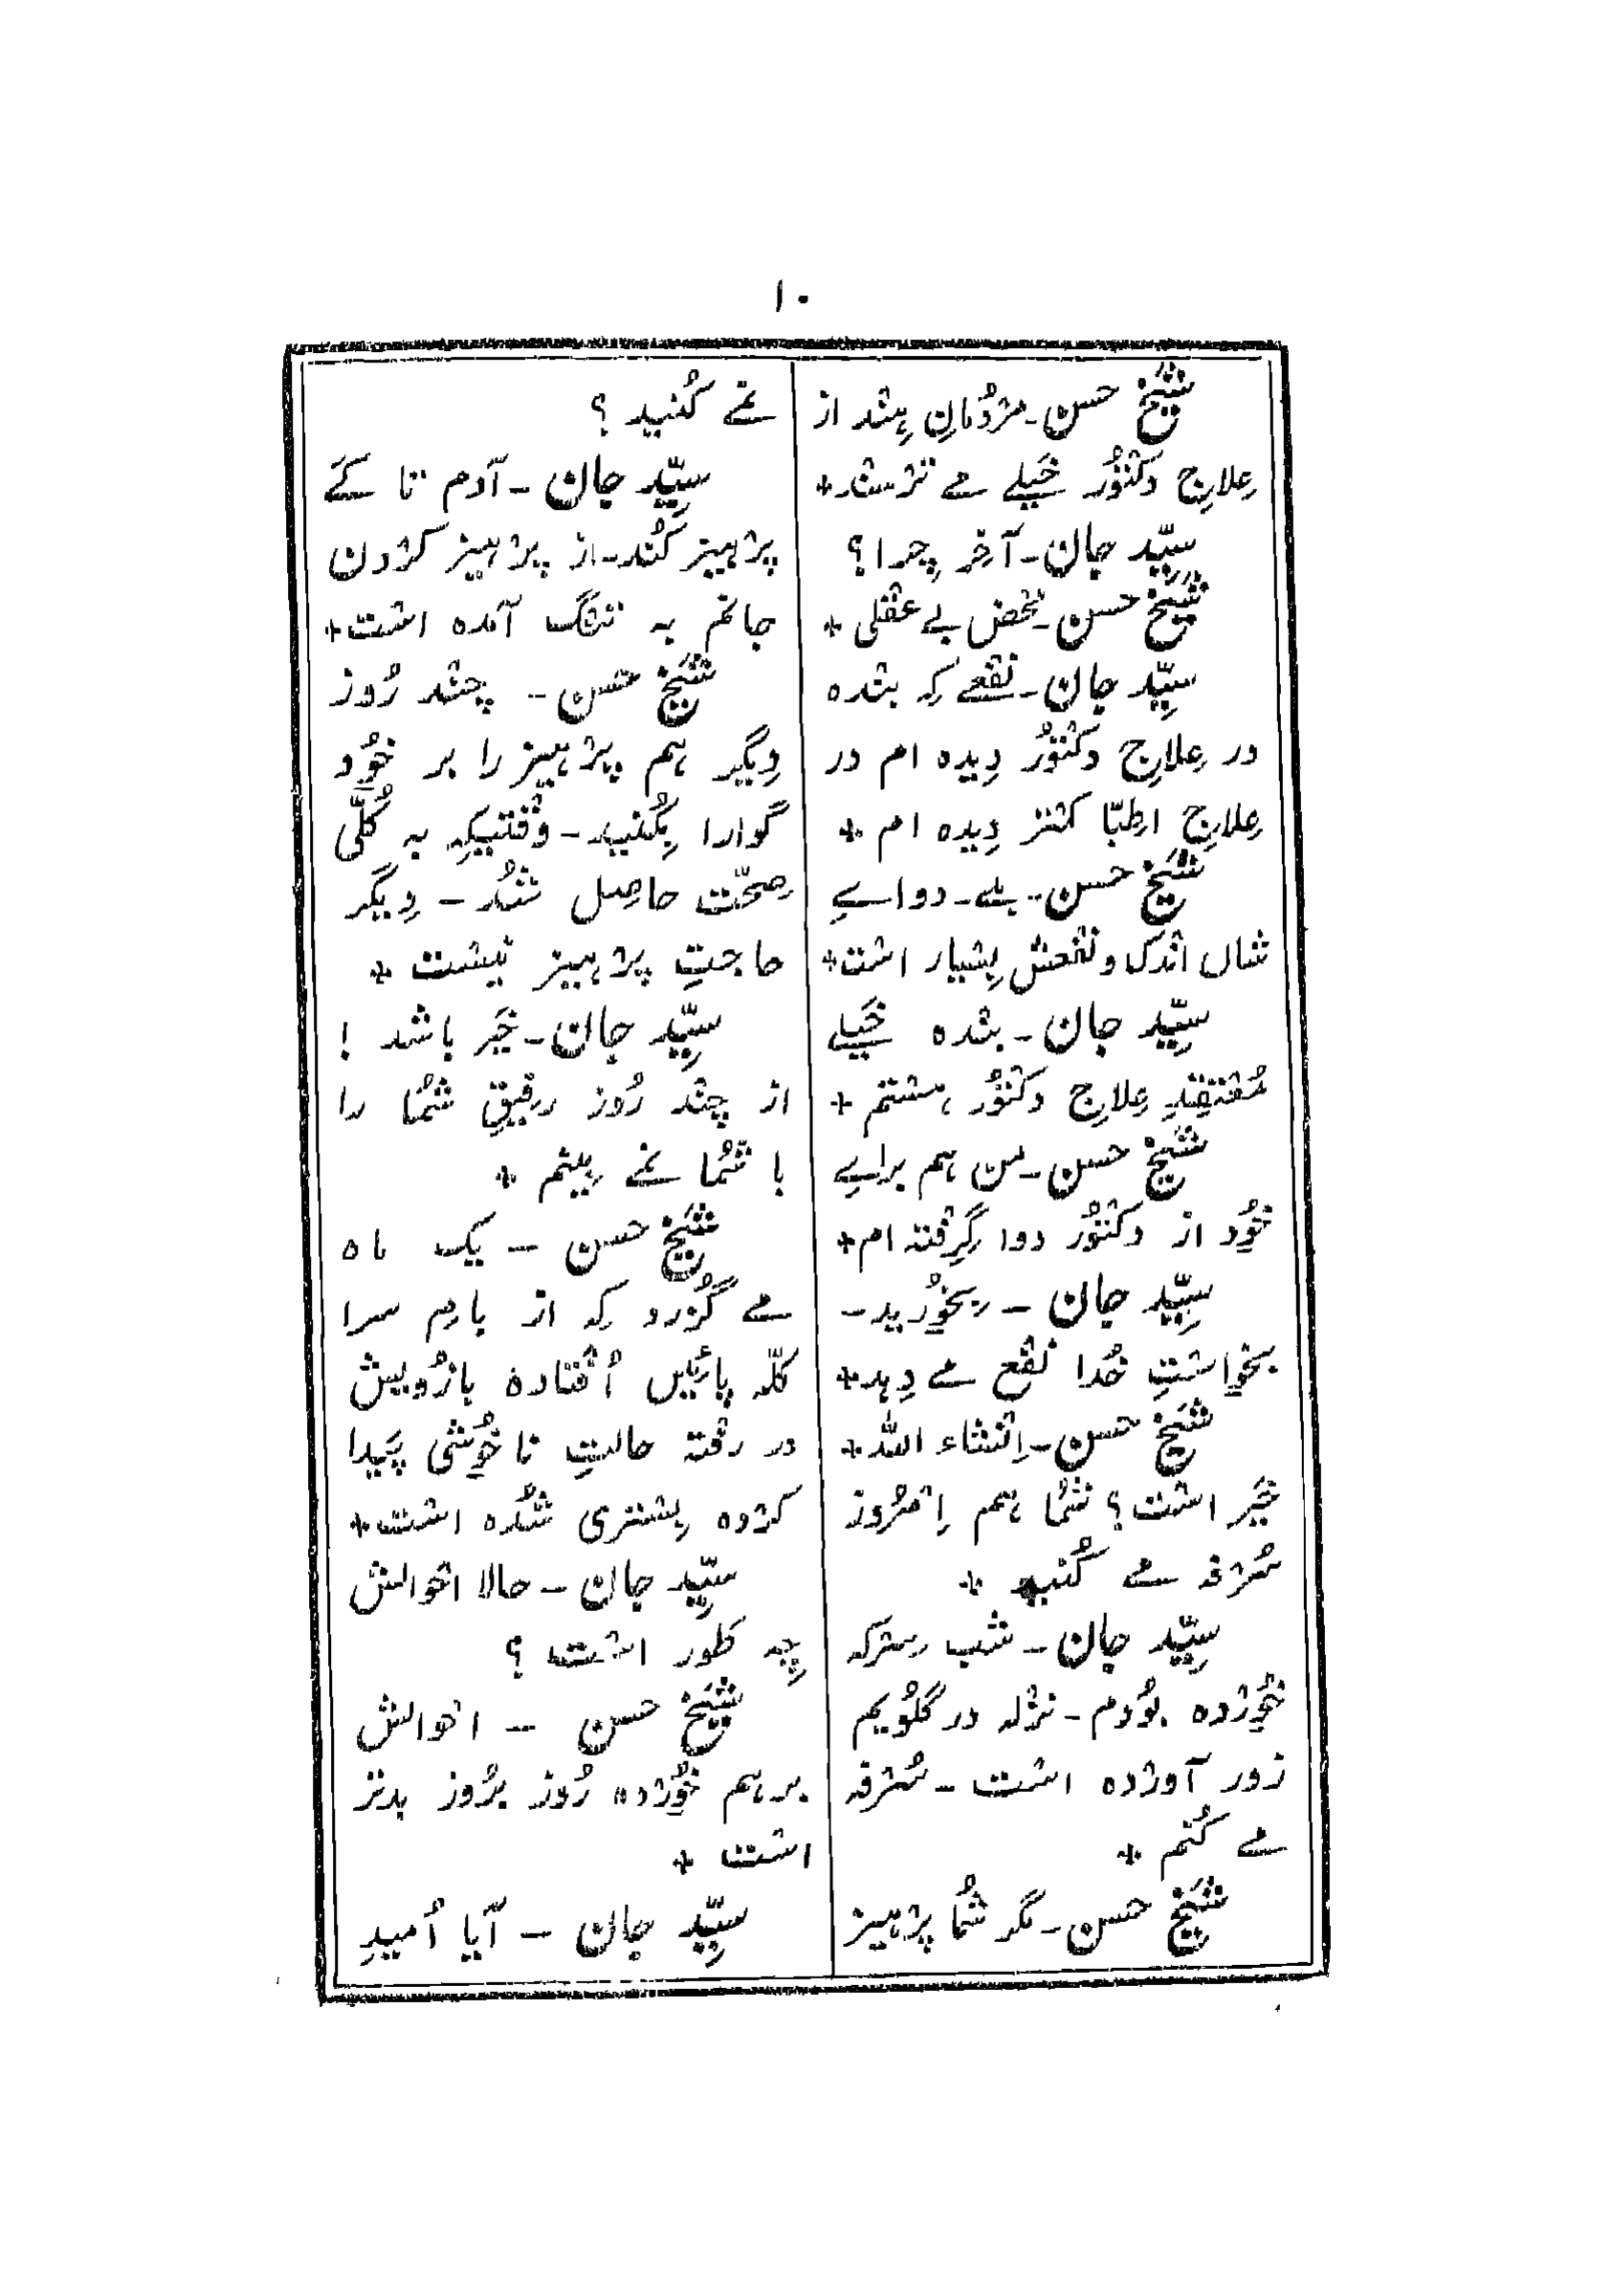 ۱۰
شَیْخ حسن ـ مرْدُمانِ ہِنْد از
عِلاجِ دکْتُوْر خَیلے مے ترْسنْد+
سیِّد جان ـ آخر چِرا؟
شَیْخ حسن ـ محْض بے عقْلی +
سیِّد جان ـ نفْعے کہ بنْدہ
در عِلاجِ دکْتُوْر دِیدہ ام در
عِلاجِ اطِبّا کمْتر دِیدہ ام +
شَیْخ حسن ـ بلے ـ دواے
شاں انْدک و نفْعش بِسْیار اسْت+
سیِّد جان ـ بنْدہ خَیلے
مُعْتقِدِ عِلاجِ دکْتُوْر ہسْتم +
شَیْخ حسن ـ من ہم براے
خُود از دکْتُوْر دوا گِرِفْتہ ام+
سیِّد جان ـ بِخُورید ـ
بخواسْتِ خُدا نفْع مے دِہد+
شَیْخ حسن ـ اِنْشاء اللہ+
خَیر اسْت؟ شُما ہم اِمْرُوز
سُرْفہ مے کُنید +
سیِّد جان ـ شب سِرْکہ
خُورْدہ بُودم ـ نزْلہ در گلُویم
زور آورْدہ اسْت ـ سُرْفہ
مے کُنم +
شَیْخ حسن ـ مگر شُما پرْہیز
نمے کُنید ؟
سیِّد جان ـ آدم تا کَے
پرْہیز کُند ـ از پرْہیز کرْدن
جانم بہ تنْگ آمدہ اسْت+
شَیْخ حسن ـ چنْد رُوز
دِیگر ہم پرْہیز را بر خُود
گوارا بِکُنید ـ وقْتیکِہ بہ کُلّی
صِحّت حاصِل شُد ـ دِیگر
حاجتِ پرْہیز نیسْت +
سیِّد جان ـ خَیر باشد !
از چنْد رُوز رفِیقِ شُما را
با شُما نمے بینم +
شَیْخ حسن ـ یک ماہ
مے گُزرد کہ از بامِ سرا
کلّہ پائیں اُفْتادہ بازُویش
در رفْتہ حالتِ نا خُوشی پَیدا
کرْدہ بِسْتری شُدہ اسْت+
سیِّد جان ـ حالا احْوالش
چِہ طَور اسْت ؟
شَیْخ حسن ـ احْوالش
برہم خُورْدہ رُوز برُوز بدتر
اسْت +
سیِّد جان ـ آیا اُمیدِ